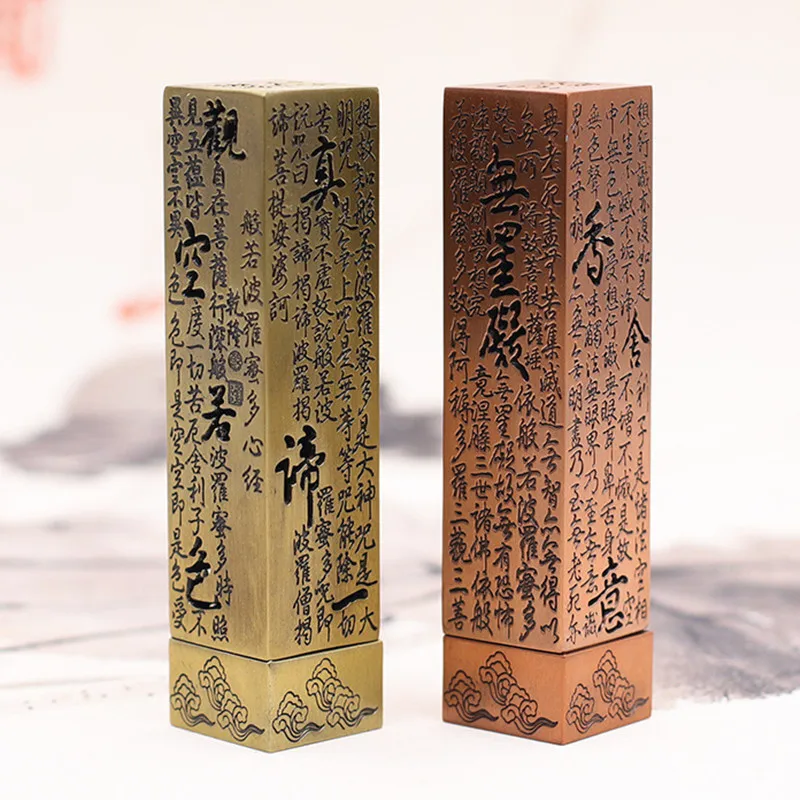 般若波羅蜜多心經
乾隆
觀自在菩薩行深般若波羅蜜多時照
見五蘊皆空度一切苦厄舍利子色不
異空空不異色色即是空空即是色受
提故知般若波羅蜜多是大神咒是大
明咒是無上咒是無等等咒能除一切
苦真實不虛故說般若波羅蜜多咒即
說咒曰揭諦揭諦波羅揭諦波羅僧揭
諦菩提娑婆訶
無老死盡無苦集滅道無智亦無得以
無所得故菩提薩埵依般若波羅蜜多
故心無罣礙無罣礙故無有恐怖
遠離顛倒夢想究竟涅槃三世諸佛依般
若波羅蜜多故得阿耨多羅三藐三菩
想行識亦復如是舍利子是諸法空相
不生不滅不垢不淨不增不減是故空
中無色無受想行識無眼耳鼻舌身意
無色聲香味觸法無眼界乃至無意識
界無無明亦無無明盡乃至無老死亦